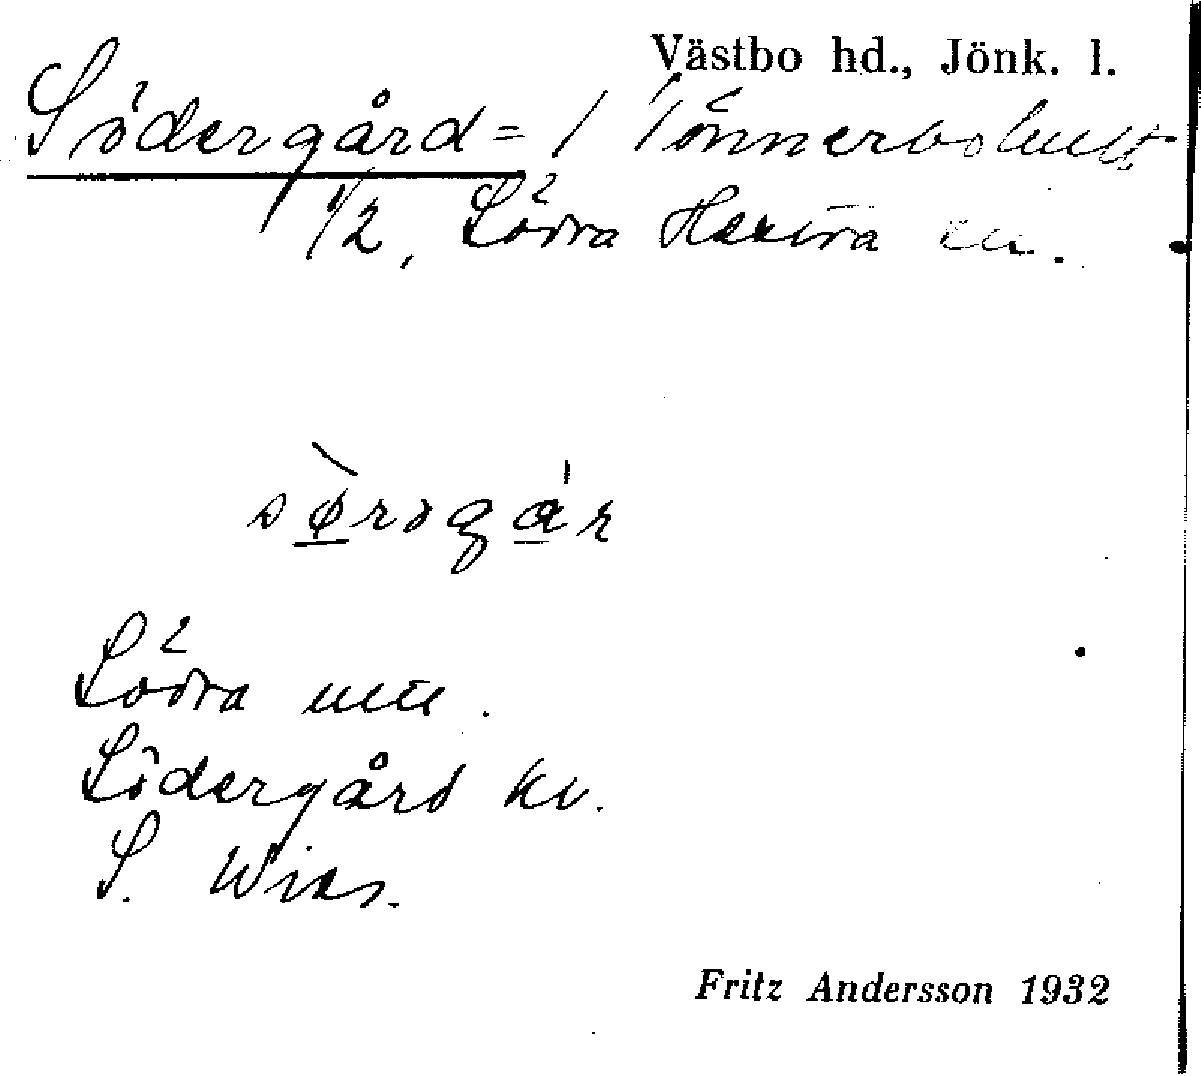 Västbo hd., Jönk. l.
Södergård = 1 Tönnerbohult
1/2, Södra Hestra sn.
sørəgár
Södra
Södergård kv.
S. Wies.
Fritz Andersson 1932